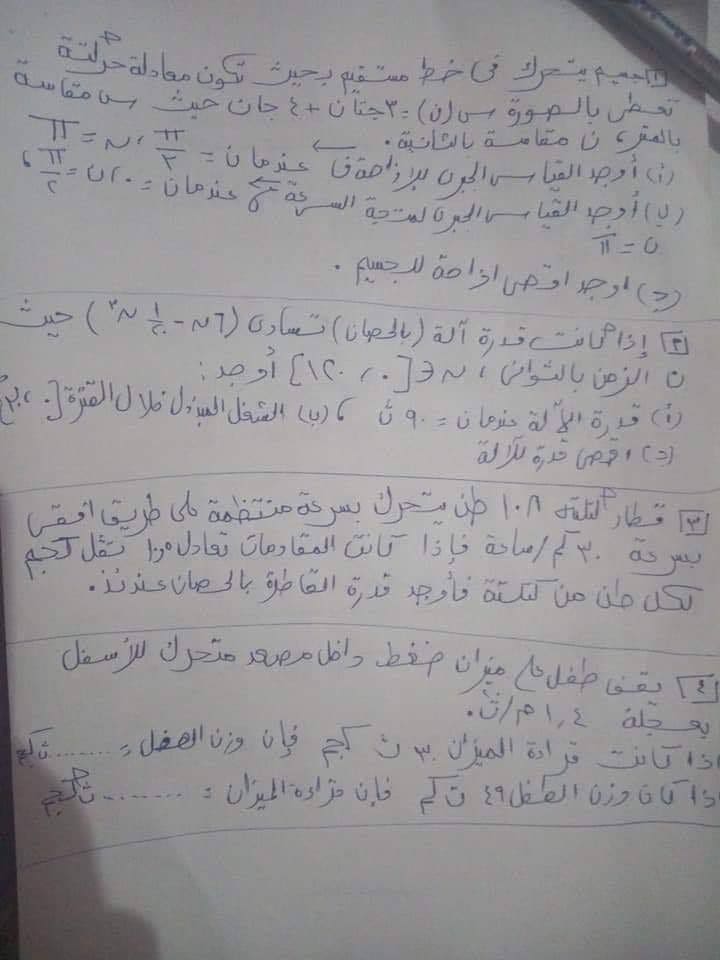 ١ جسيم يتحرك فى خط مستقيم بحيث تكون معادلة حركته
تعطى بالصورة س(ن) = ٣جتان + ٤ جان حيث س مقاسة
بالمتر، ن مقاسة بالثانية.
(أ) أوجد القياس الجبرى للإزاحة ف عندما ن = π/٢ ، ن = π
(ب) أوجد القياس الجبرى لمتجه السرعة ع عندما ن = ٠ ، ن = π/٢ ،
ن = π
(جـ) اوجد اقصى ازاحة للجسيم .
٢ إذا كانت قدرة آلة (بالحصان) تساوى (٦ن - ١/٢٠ ن٢) حيث
ن الزمن بالثوانى ، ن ∈ [٠، ١٢٠] أوجد :
(أ) قدرة الآلة عندما ن = ٩٠ ث ، (ب) الشغل المبذول خلال الفترة [٠، ٣٠]
(جـ) اقصى قدرة للآلة
٣ قطار كتلته ١٠٨ طن يتحرك بسرعة منتظمة على طريق افقى
بسرعة ٣٠ كم/ساعة فإذا كانت المقاومات تعادل ١٥ ثقل كجم
لكل طن من كتلتة فأوجد قدرة القاطرة بالحصان عندئذ.
٤ يقف طفل على ميزان ضغط داخل مصعد متحرك للأسفل
بعجلة ١,٤ م/ث٢.
اذا كانت قراءة الميزان ٣٠ ث كجم فإن وزن الطفل = ........ ث كجم
اذا كان وزن الطفل ٤٩ ث كجم فإن قراءة الميزان = ........ ث كجم